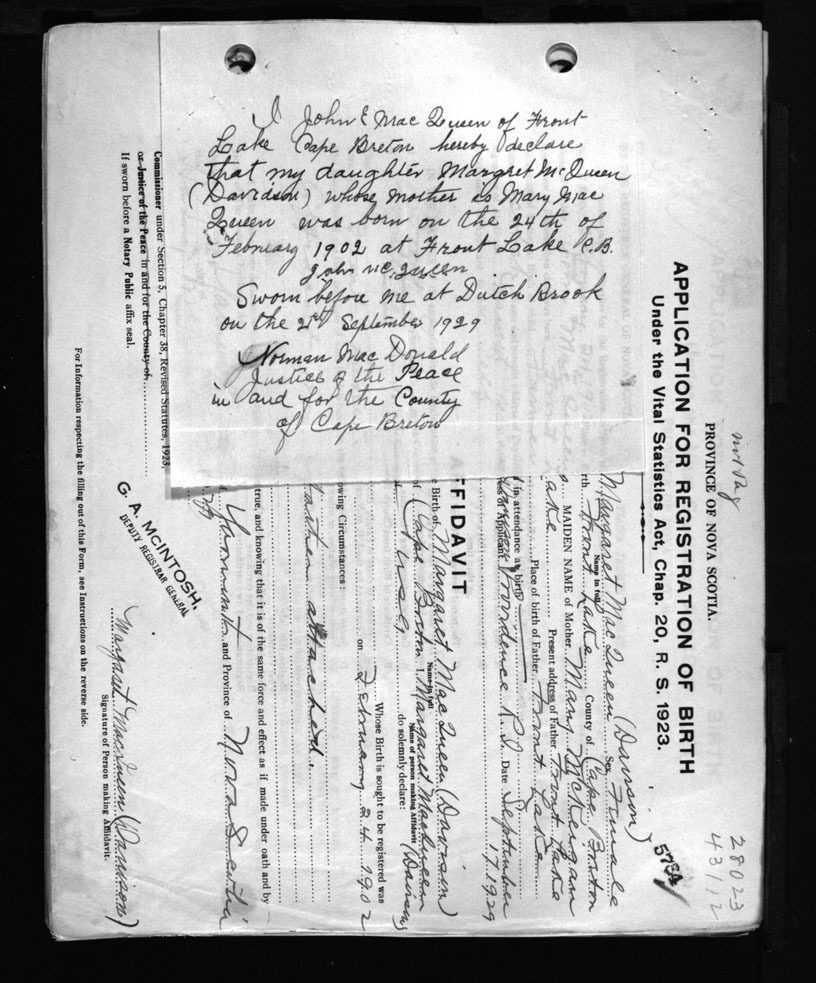 I John E Mac Queen of Front
Lake Cape Breton hereby declare
that my daughter Margret McQueen
(Davidson) whose mother is Mary Mac
Queen was born on the 24th of
February 1902 at Front Lake C.B.
John Mc Queen
Sworn before me at Dutch Brook
on the 21st September 1929
Norman Mac Donald
Justice of the Peace
in and for the County
of Cape Breton
28023
43/12
578A
PROVINCE OF NOVA SCOTIA.
APPLICATION FOR REGISTRATION OF BIRTH
Under the Vital Statistics Act, Chap. 20, R. S. 1923.
Margaret Mac Queen (Davison) Sex Female
Name in full
Front Lake County of Cape Breton
MAIDEN NAME of Mother Mary
Lake Present address of Father Front Lake
Place of birth of Father Front Lake
in attendance at birth
Providence R.I. Date September 17 1929
of Applicant
AFFIDAVIT
Birth of Margaret Mac Queen (Davison)
Name in full
of Cape Breton I Margaret MacQueen (Davison)
Name of person making Affidavit
do solemnly declare:
Whose Birth is sought to be registered was
on February 24 1902
owing Circumstances:
attached.
true, and knowing that it is of the same force and effect as if made under oath and by
Yarmouth and Province of Nova Scotia
G. A. McINTOSH,
DEPUTY REGISTRAR GENERAL
Margaret MacQueen (Davison)
Signature of Person making Affidavit.
Commissioner under Section 5, Chapter 38, Revised Statutes, 1923,
or Justice of the Peace in and for the County of
If sworn before a Notary Public affix seal.
For Information respecting the filling out of this Form, see Instructions on the reverse side.